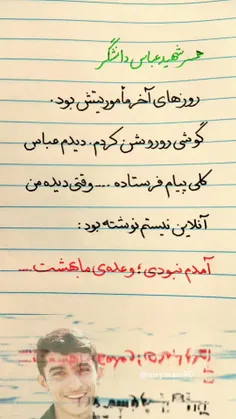 همسر شهید عباس دانشگر
روزهای آخر مأموریتش بود.
گوشی رو روشن کردم، دیدم عباس
کلی پیام فرستاده .... وقتی دیده من
آنلاین نیستم نوشته بود:
آمدم نبودی؛ وعده‌ی ما بهشت....